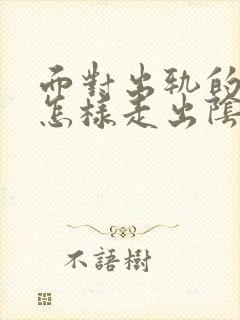 面對出軌的
怎樣走出陰
不語樹